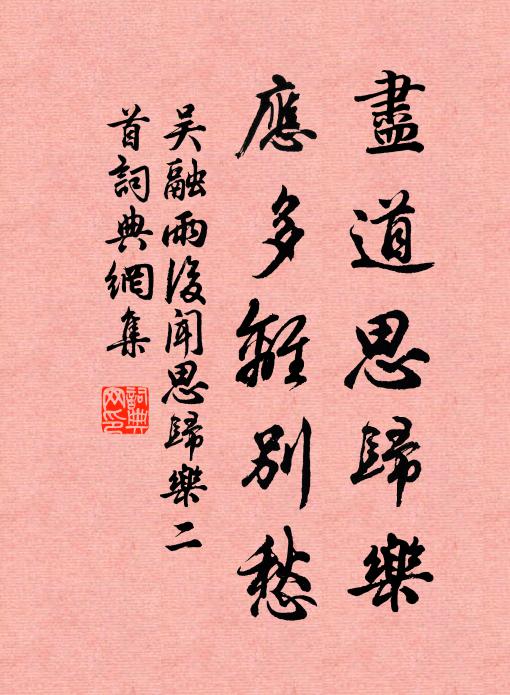 盡道思歸樂
應多離別愁
吴融雨後聞思歸樂二
首詞典網集
詞典
网印